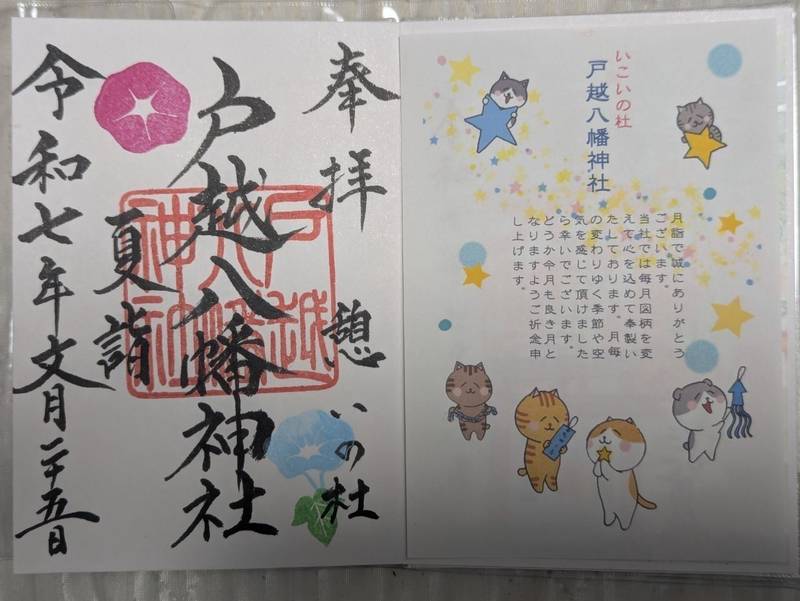 奉拝 憩いの杜
戸越八幡神社
夏詣
令和七年文月二十五日
戸越
八幡
神社
いこいの杜
戸越八幡神社
月詣で誠にありがとう
ございます。
当社では毎月図柄を変
えて心を込めて奉製い
たしております。月毎
の変わりゆく季節や空
気を感じて頂けました
ら幸いでございます。
どうか今月も良き月と
なりますようご祈念申
し上げます。